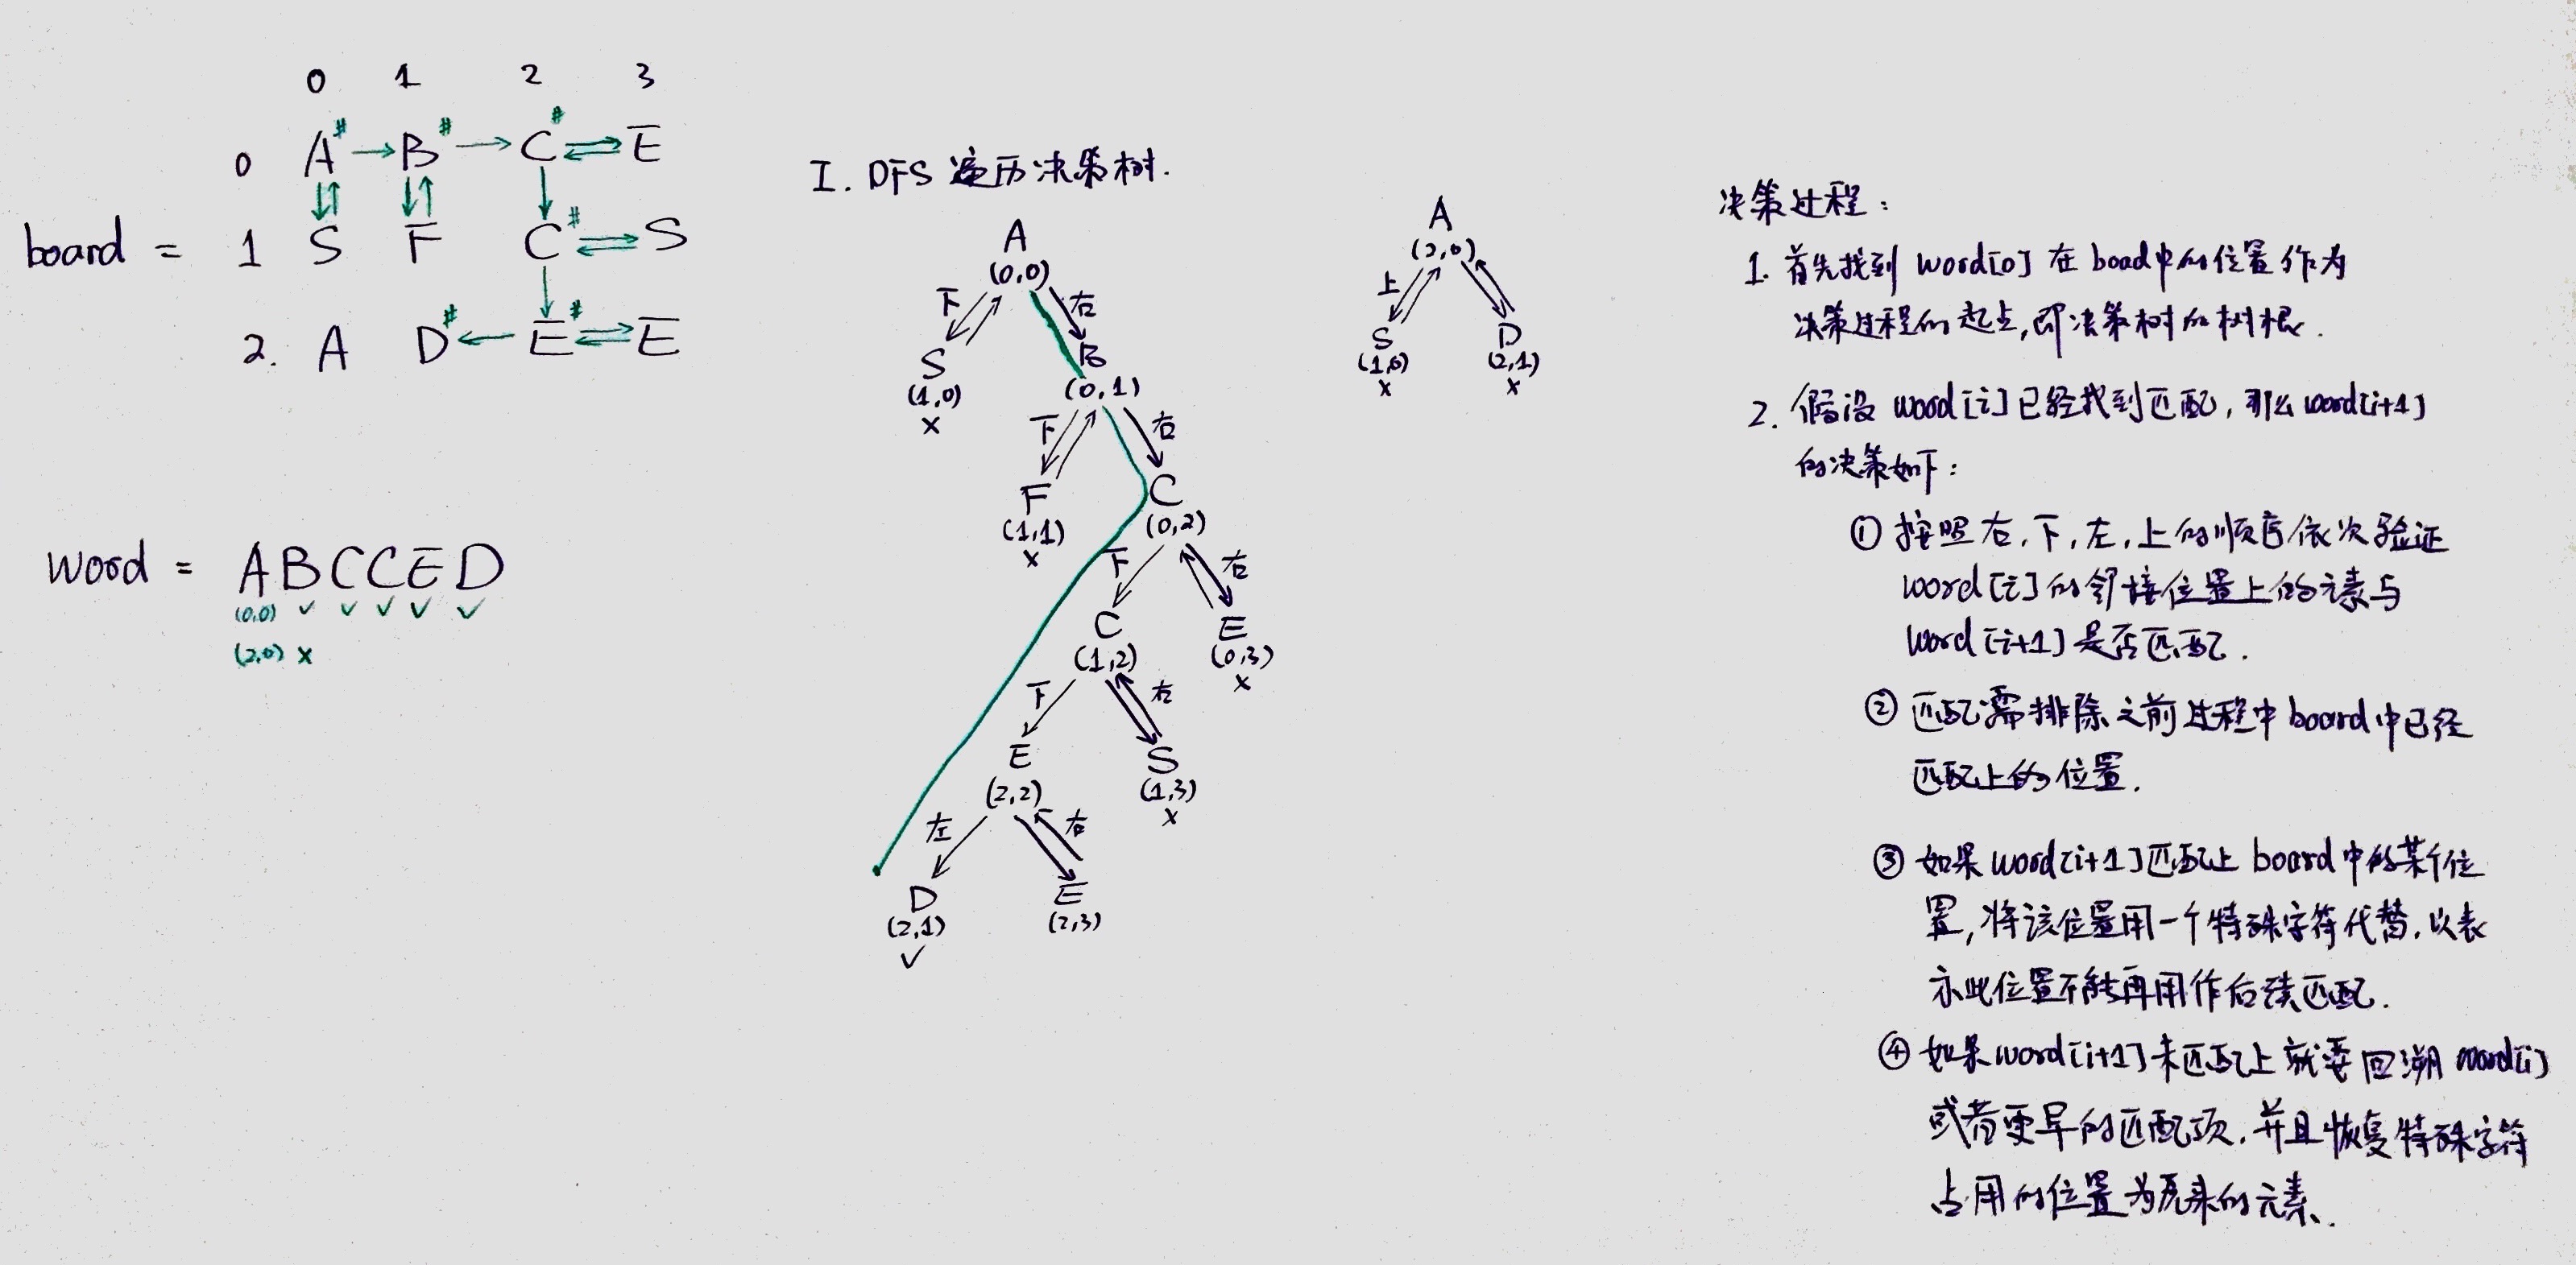 0 1 2 3
0 A# → B# → C# ⇌ E
board = 1 S F C# ⇌ S
2. A D# ← E# ⇌ E
word = ABCCED
(0,0) ✓ ✓ ✓ ✓ ✓
(2,0) x
I. DFS 遍历决策树.
A
(0,0)
下 右
S
(1,0)
x
B
(0,1)
下 右
F
(1,1)
x
C
(0,2)
下 右
C
(1,2)
E
(0,3)
x
下 右
E
(2,2)
S
(1,3)
x
左 右
D
(2,1)
✓
E
(2,3)
A
(2,0)
上
S
(1,0)
x
D
(2,1)
x
决策过程：
1. 首先找到 word[0] 在 boad中的位置作为
决策过程的起点,即决策树的树根.
2. 假设 word[i]已经找到匹配, 那么word[i+1]
的决策如下：
① 按照右,下,左,上的顺序依次验证
word[i]的邻接位置上的元素与
word[i+1]是否匹配.
② 匹配需排除之前过程中board中已经
匹配上的位置.
③ 如果word[i+1]匹配上 board中的某个位
置,将该位置用一个特殊字符代替,以表
示此位置不能再用作后续匹配.
④ 如果word[i+1]未匹配上就要回溯word[i]
或者更早的匹配项,并且恢复特殊字符
占用的位置为原来的元素.